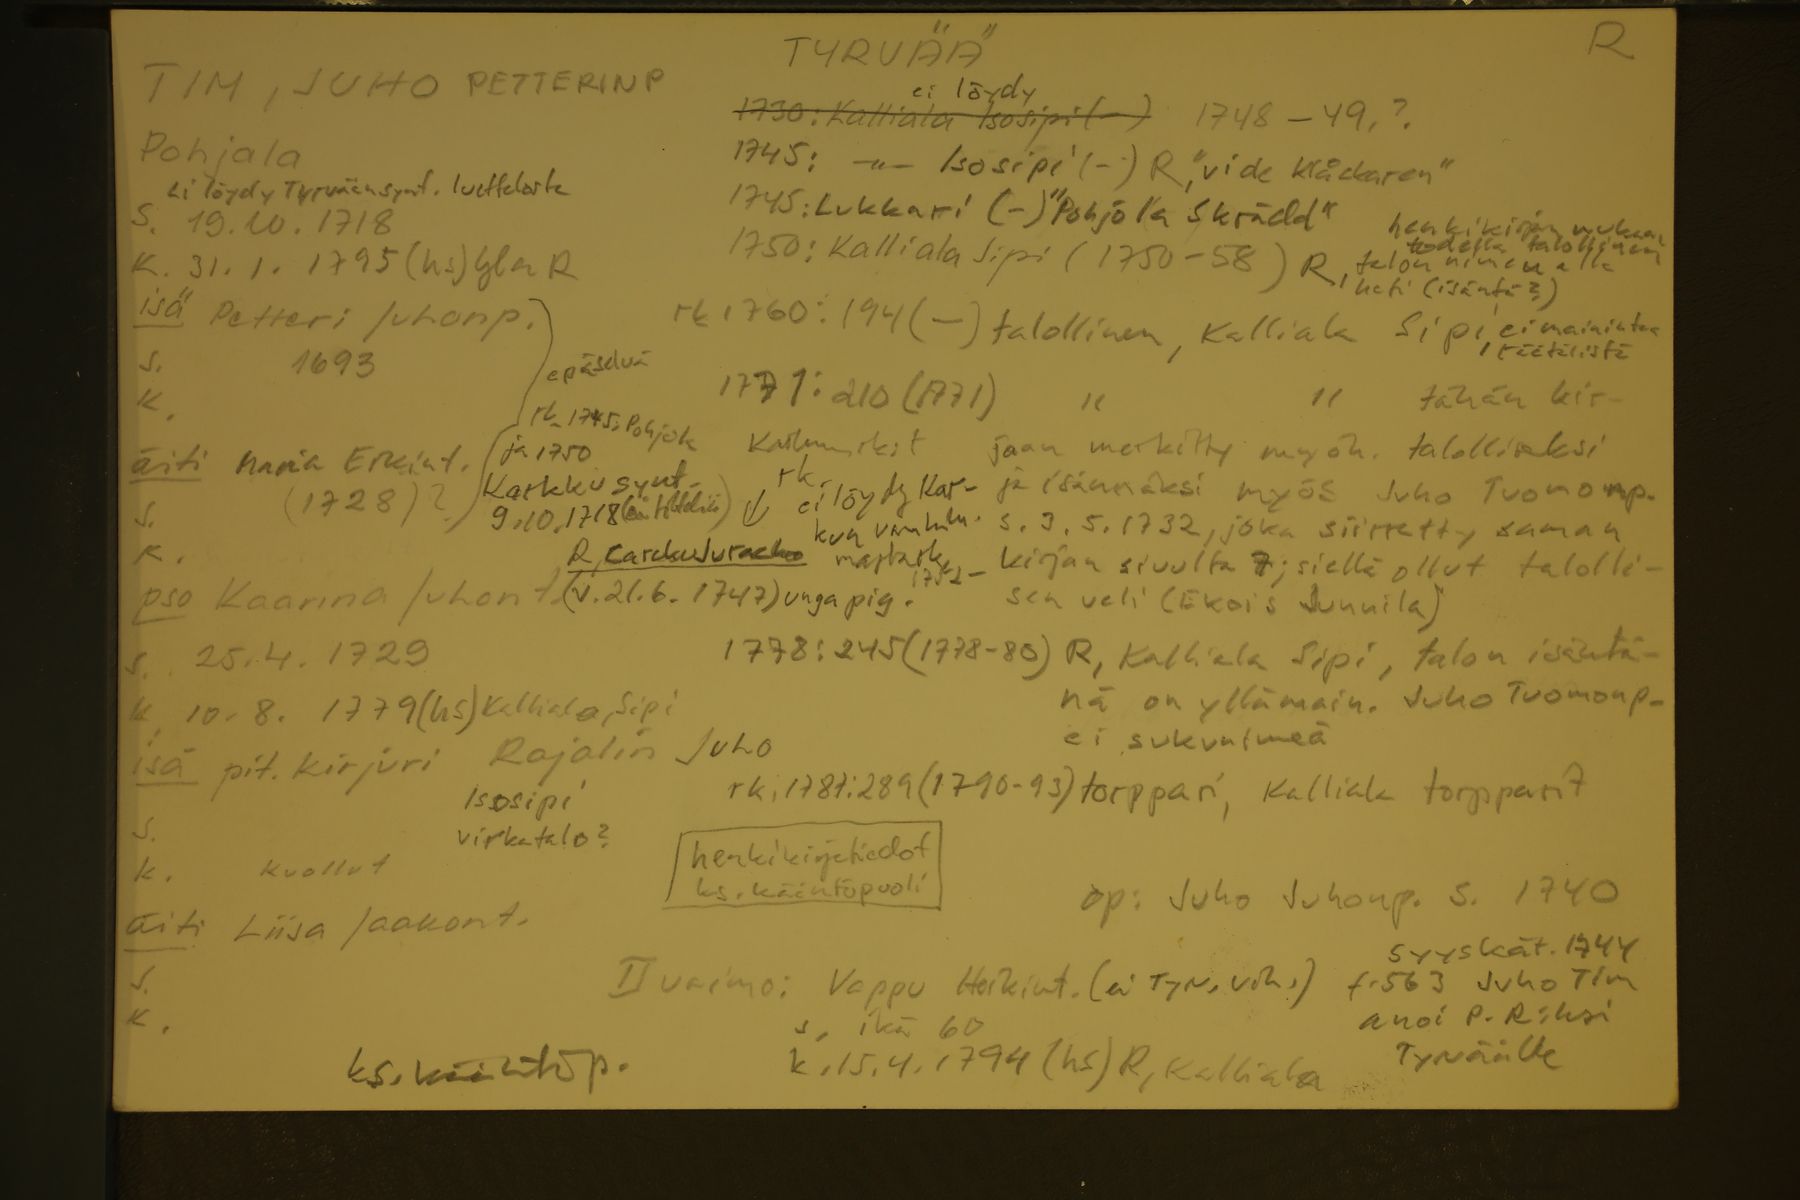 TYRVÄÄ
R
TIM, JUHO PETTERINP
Pohjala
ei löydy Tyrvään synt. luettelosta
S. 19.10.1718
K. 31.1.1795 (hs) R
isä Petteri Juhonp.
s. 1693
K.
epäselvä
rk 1745: Pohjola
ja 1750
äiti Maria Erkint.
(1728)?
Karkku synt.
9.10.1718
s.
K.
R, Carcku
pso Kaarina Juhont. (v. 21.6.1747) unga pig.
s. 25.4.1729
k. 10.8.1779 (hs) Kalliala, Sipi
isä pit. kirjuri Rajalin Juho
Isosipi
virkatalo?
s.
k. kuollut
äiti Liisa Jaakont.
s.
K.
ks. kääntöp.
ei löydy
1730: Kalliala Isosipi (-) 1748-49,?
1745: -"- Isosipi (-) R, "vide Klåckaren"
1745: Lukkari (-) "Pohjola Skrädd"
1750: Kalliala Sipi (1750-58) R,
henkikirjan mukaan
todella talollinen
talon nimen alla
heti (isäntä?)
rk 1760: 194 (-) talollinen, Kalliala Sipi, ei mainintaa
räätälistä
1771: 210 (1771) " " tähän kir-
jaan merkitty myöh. talolliseksi
rk.
ei löydy Kar-
kun vanhim.
1752-
ja isännäksi myös Juho Tuomonp.
s. 3.5.1732, joka siirretty saman
kirjan sivulta 7; siellä ollut talolli-
sen veli (Ekois Junnila)
1778: 245 (1778-80) R, Kalliala Sipi, talon isäntä-
nä on yllämain. Juho Tuomonp.
ei sukunimeä
rk, 1787: 289 (1790-93) torppari, Kalliala torpparit
henkikirjatiedot
ks. kääntöpuoli
op: Juho Juhonp. s. 1740
II vaimo: Vappu Heikint. (ei Tyrv. vih.)
s. ikä 60
k. 15.4.1794 (hs) R, Kalliala
syyskär. 1744
f. 563 Juho Tim
anoi p. R:ksi
Tyrväälle